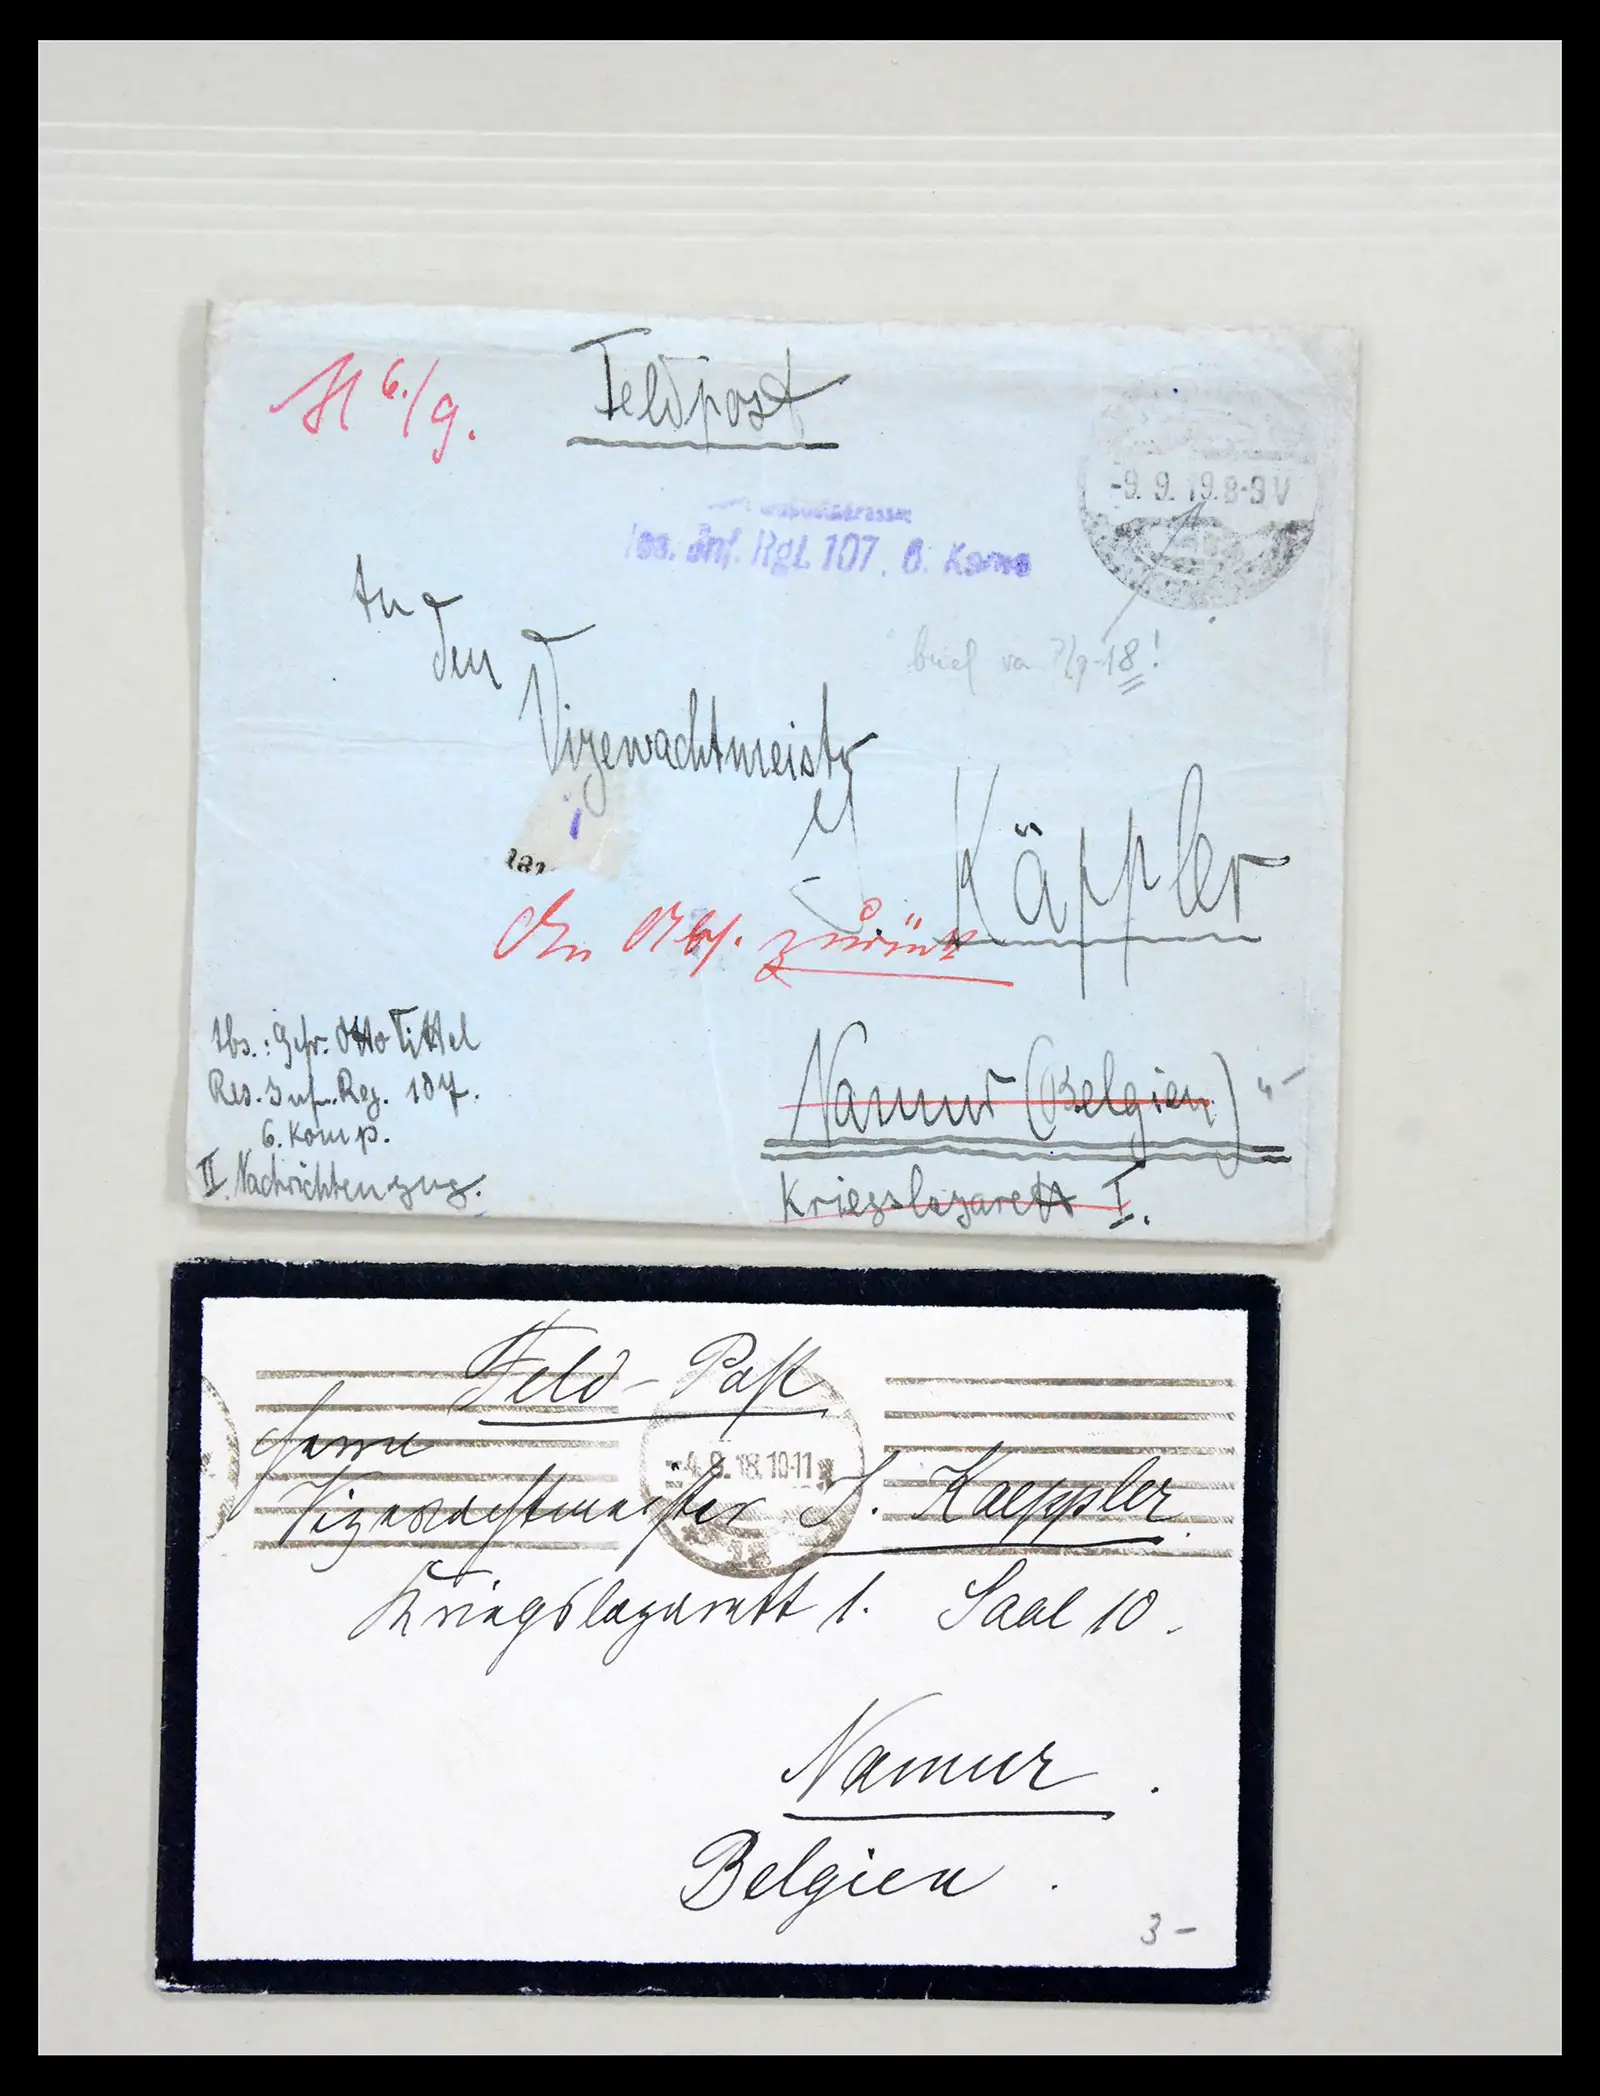 H 6./9.
Feldpost
-9. 9. 19. 8-9 V
Inf. Rgt. 107, 6. Komp
An
den
brief van 7/9-18!
Vizewachtmeister
Käppler
An Abs. zurück
Abs.: Gefr. Otto Tittel
Res. Inf. Reg. 107.
6. Komp.
II. Nachrichtenzug.
Namur (Belgien)
Kriegslazarett I.
Feld-Post
4.9.18.10-11
Herrn
Vizewachtmeister J. Kaeppler
Kriegslazarett 1. Saal 10.
Namur.
Belgien.
3-